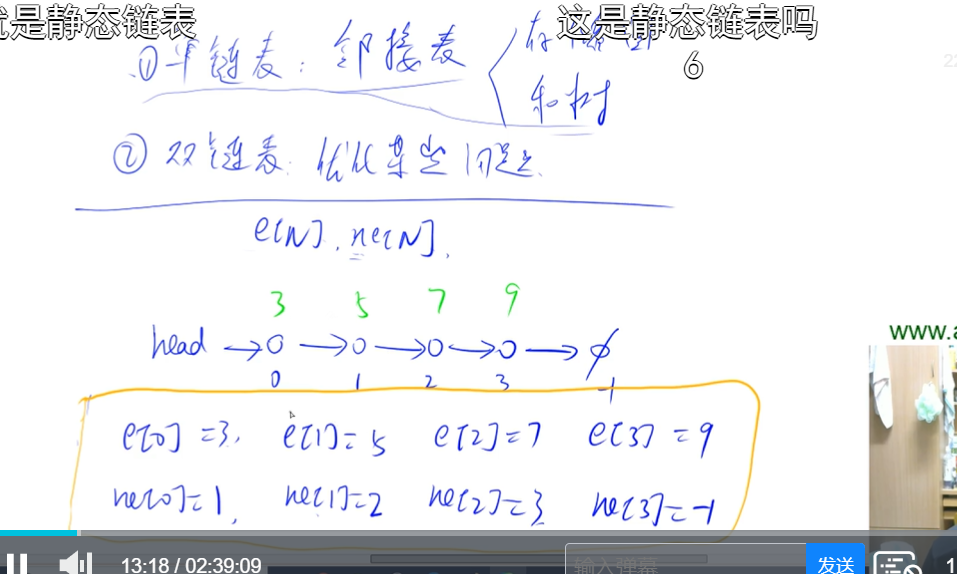 就是静态链表
这是静态链表吗
6
① 单链表: 邻接表
存储图
和树
② 双链表: 优化某些问题.
e[N], ne[N],
3 5 7 9
head → o → o → o → o → ∅
0 1 2 3 -1
www.a
e[0] = 3, e[1] = 5 e[2] = 7 e[3] = 9
ne[0] = 1, ne[1] = 2 ne[2] = 3 ne[3] = -1
13:18 / 02:39:09
输入弹幕
发送